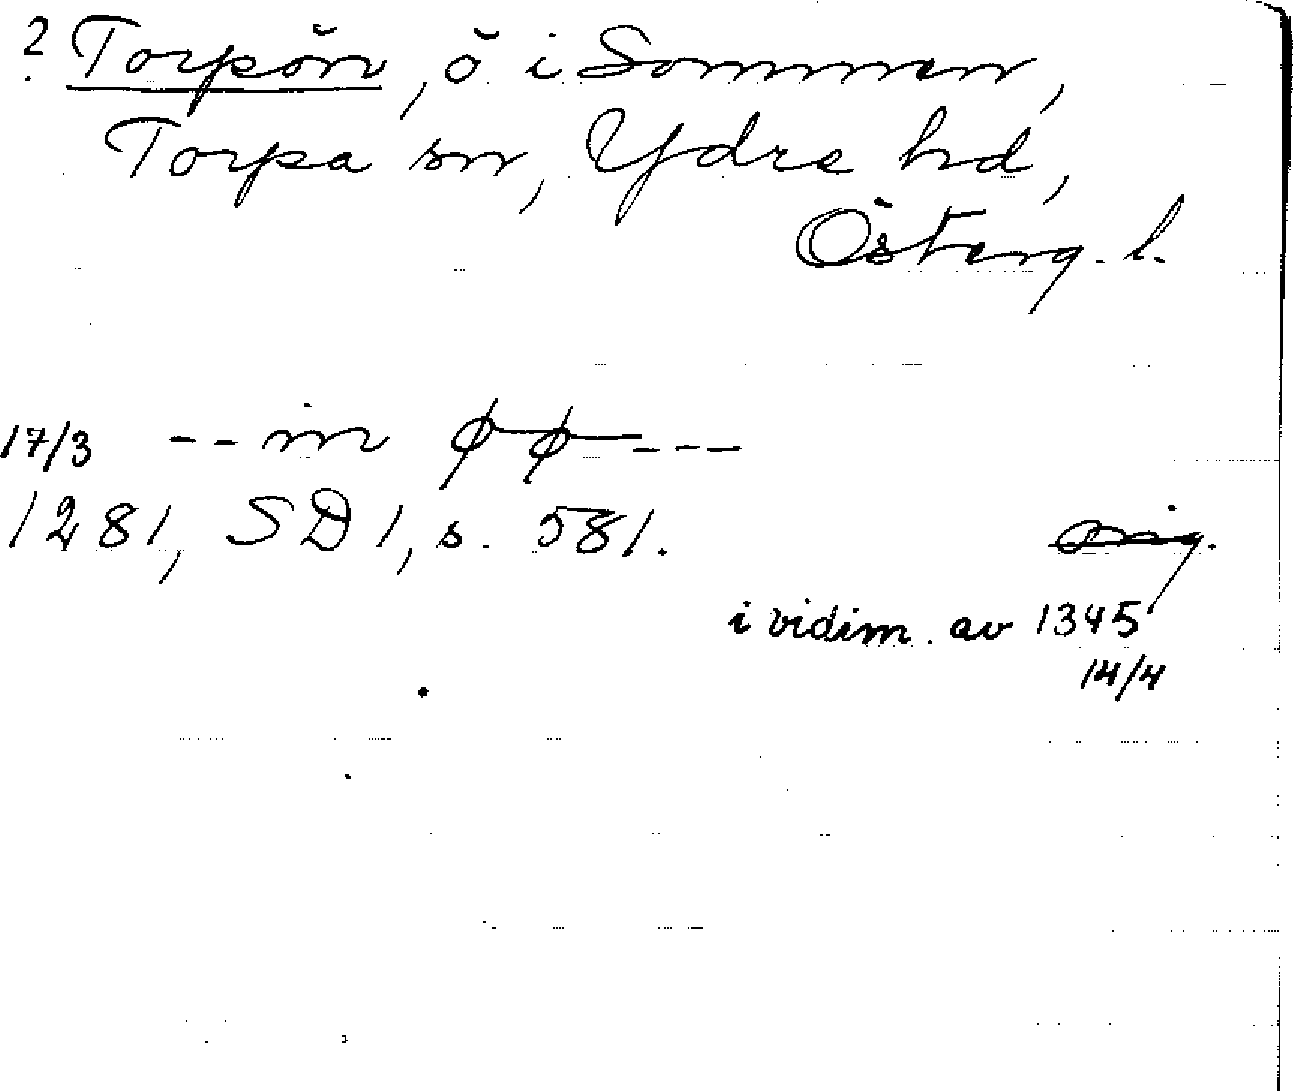 ? Torpön, ö i Sommen,
Torpa sn, Ydre hd,
Österg. l.
17/3 -- in øø ---
1281, SD 1, s. 581.
orig.
i vidim. av 1345
14/4